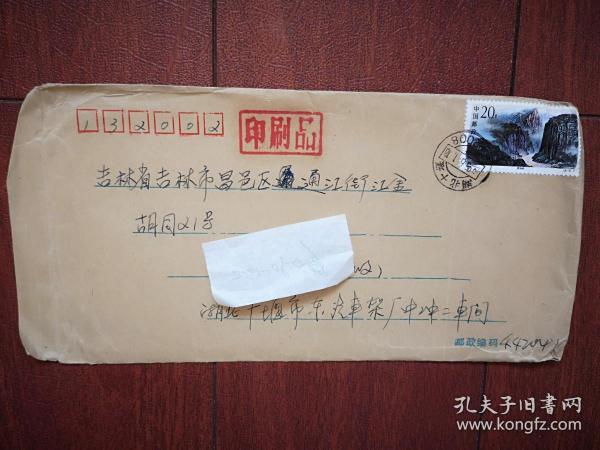 132002
印刷品
20分
中国邮政
吉林省吉林市昌邑区通江街江金
胡同21号
收)
湖北十堰市东汽車架厂中冲二車间
邮政编码
孔夫子旧書网
www.kongfz.com